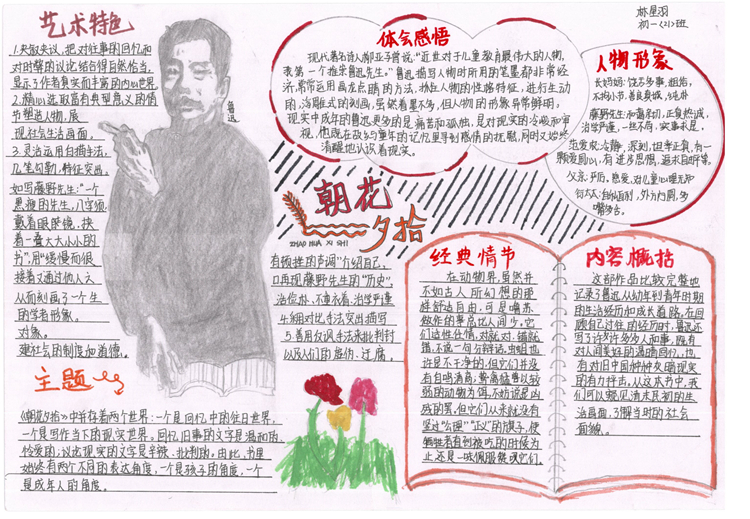 林星羽
初一〈2〉班
艺术特色
1.夹叙夹议，把对往事的回忆和
对时弊的议论结合得自然恰当，
显示了作者真实而丰富的内心世界.
2.精心选取富有典型意义的情
节塑造人物，展
现社会生活画面，
3.灵活运用白描手法，
几笔勾勒，特征突出，
如写藤野先生：“一个
黑瘦的先生，八字须，
戴着眼镜，挟
着一叠大大小小的
书”，用“缓慢而很
鲁迅
有顿挫的声调”介绍自己，
治位朴、不重衣着、治学严谨
4.细对比手法突出描写
5.善用反讽手法来批判封
以及人们的虚伪、迂腐。
接着又通过他人之
从而刻画了一个生
的学者形象。
对象。
建社会的制度和道德。
体会感悟
现代著名诗人柳亚子曾说：“近世对于儿童教育最伟大的人物，
我第一个推崇鲁迅先生。”鲁迅描写人物时所用的笔墨都非常经
济，常常运用画龙点睛的方法，抓住人物的性格特征，进行生动
的、浮雕式的刻画，虽然着墨不多，但人物的形象异常鲜明，
现实中成年的鲁迅更多的是痛苦和孤独，是对现实的冷峻和审
视，他现在故乡与童年的记忆里寻到感情的抚慰，同时又始终
清醒地认识着现实。
人物形象
长妈妈：饶舌多事，粗俗，
不拘小节、善良真诚，纯朴
治学严谨，一丝不苟，实事求是，
范爱农：冷静，深刻，但率正真，有一
颗爱国心，有进步思想，追求自由平等.
朝花
夕拾
ZHAO HUA XI SHI
主题
《朝花夕拾》中并存着两个世界：一个是回忆中的往日世界，
一个是写作当下的现实世界。回忆旧事的文字是温和的，
怜爱的，议论现实的文字是辛辣、批判的。由此，书里
始终有两个不同的表达角度，一个是孩子的角度，一个
是成年人的角度。
经典情节
在动物界，虽然并
不如古人所幻想的那
样舒适自由，可是噜苏
做作的事总比人间少。它
们适性任情，对就对，错就
错，不说一句分辩话。虫蛆也
许是不干净的，但它们并没
有自鸣清高；鸷禽猛兽以较
弱的动物为饵，不妨说是凶
残的罢，但它们从来就没有
竖过“公理”“正义”的旗子，使
牺牲者直到被吃的时候为
止，还是一味佩服赞叹它们。
内容概括
这部作品比较完整地
记录了鲁迅从幼年到青年时期
的生活经历和成长道路，在回
顾自己过往的经历时，鲁迅还
写了许多许多人和事，既有
对人间美好的温暖回忆，也
有对旧中国种种灰暗现实
的有力抨击，从这本书中，我
们可以窥见清末民初的生
活画面，了解当时的社会
面貌。